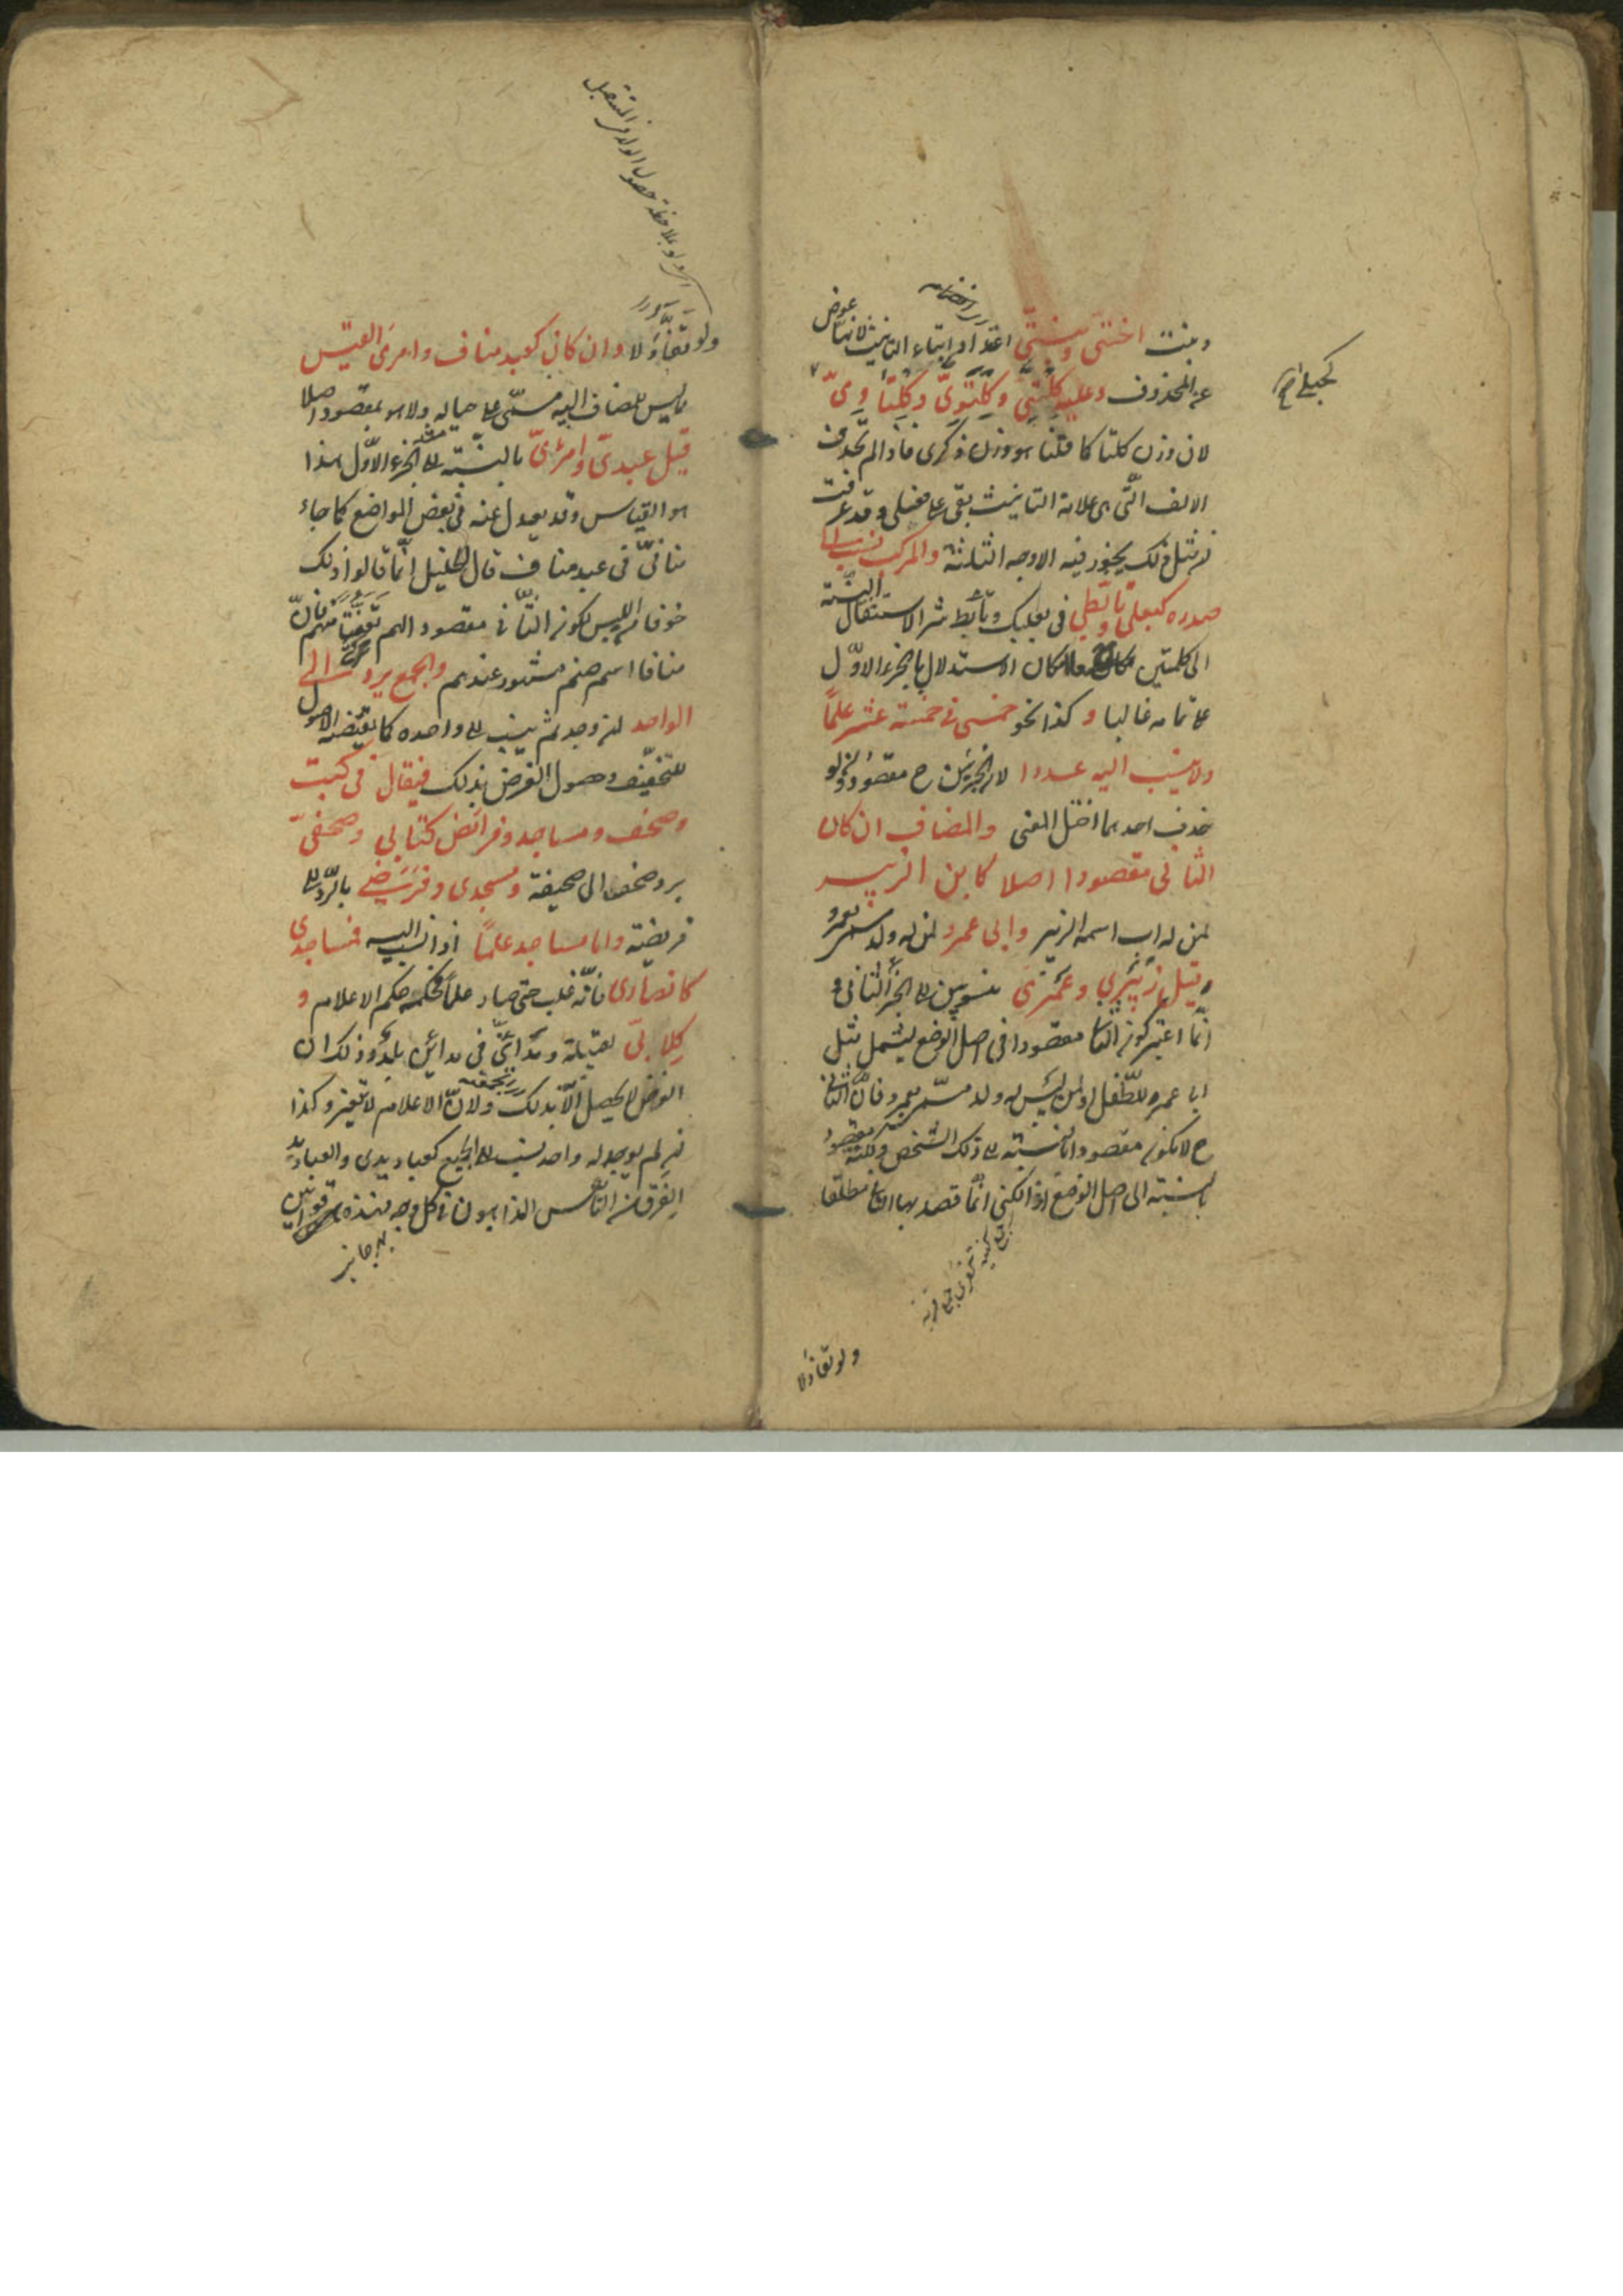 وبنت اختيّ وبنتيّ اعتدادا بتاء التانيث لانها عوض
عن المحذوف وعليه كلتيّ وكلتويّ وكلتاويّ
لان وزن كلتا كما قلنا هو وزن ذكرى فاذا لم تحذف
الالف التى هى علامة التانيث بقى على فعلى وقد عرفت
ان مثل ذلك يجوز فيه الاوجه الثلثة والمركب ينسب الى
صدره كبعلى وتأبطى فى بعلبك وتأبط شرا لاستثقال النسبة
الى كلمتين معا وكان الاستدلال بالجزء الاول
على تمامه غالبا وكذا نحو خمسى فى خمسة عشر علماً
ولا ينسب اليه عددا لان الجزئين ح مقصودان ولو
حذف احدهما اختل المعنى والمضاف ان كان
الثانى مقصودا اصلا كابن الزبير
لمن له اب اسمه الزبير وابى عمرو لمن له ولد سمى بعمرو
قيل زبيرى وعمرى منسوبين الى الجزء الثانى و
انما اعتبر كون الثانى مقصودا فى اصل الوضع ليشمل مثل
ابى عمرو للطفل او لمن ليس له ولد مسمى بعمرو فان الثانى
ح لا يكون مقصودا بالنسبة الى ذلك الشخص ولكنه مقصود
بالنسبة الى اصل الوضع اذ الكنى انما قصد بها الثانى مطلقا
جمع كنية
ولو تفاؤلا
ولو بملاحظة حصول الولد فى المستقبل
ولو تفاؤلا وان كان كعبد مناف وامرئ القيس
مما ليس للمضاف اليه مسمّى على حياله ولا هو بمقصود اصلا
قيل عبدىّ وامرئىّ بالنسبة الى الجزء الاول هذا
هو القياس وقد يعدل عنه فى بعض المواضع كما جاء
منافىّ فى عبد مناف قال الخليل انما قالوا ذلك
خوفا من اللبس لكون الثانى مقصودا لهم منهم فان
منافا اسم صنم مشهور عندهم والجمع يرد الى
الواحد ان وجد ثم ينسب الى واحده كما يقتضيه الاصول
للتخفيف وحصول الغرض بذلك فيقال فى كتب
وصحف ومساجد وفرائض كتابى وصحفىّ
برد صحف الى صحيفة ومسجدى وفرضى بالرد الى
فريضة واما مساجد علماً اذا نسب اليه فمساجدى
كانصارى فانه غلب حتى صار علما فحكمه حكم الاعلام و
كلابىّ لقبيلة ومدائنىّ فى مدائن بلدة وذلك ان
الغرض لا يحصل الا بذلك ولان الاعلام لا تتغير وكذا
ان لم يوجد له واحد نسب الى الجمع كعباديدى والعباديد
الفرق من الناس الذاهبون فى كل وجه فهذه قوانين